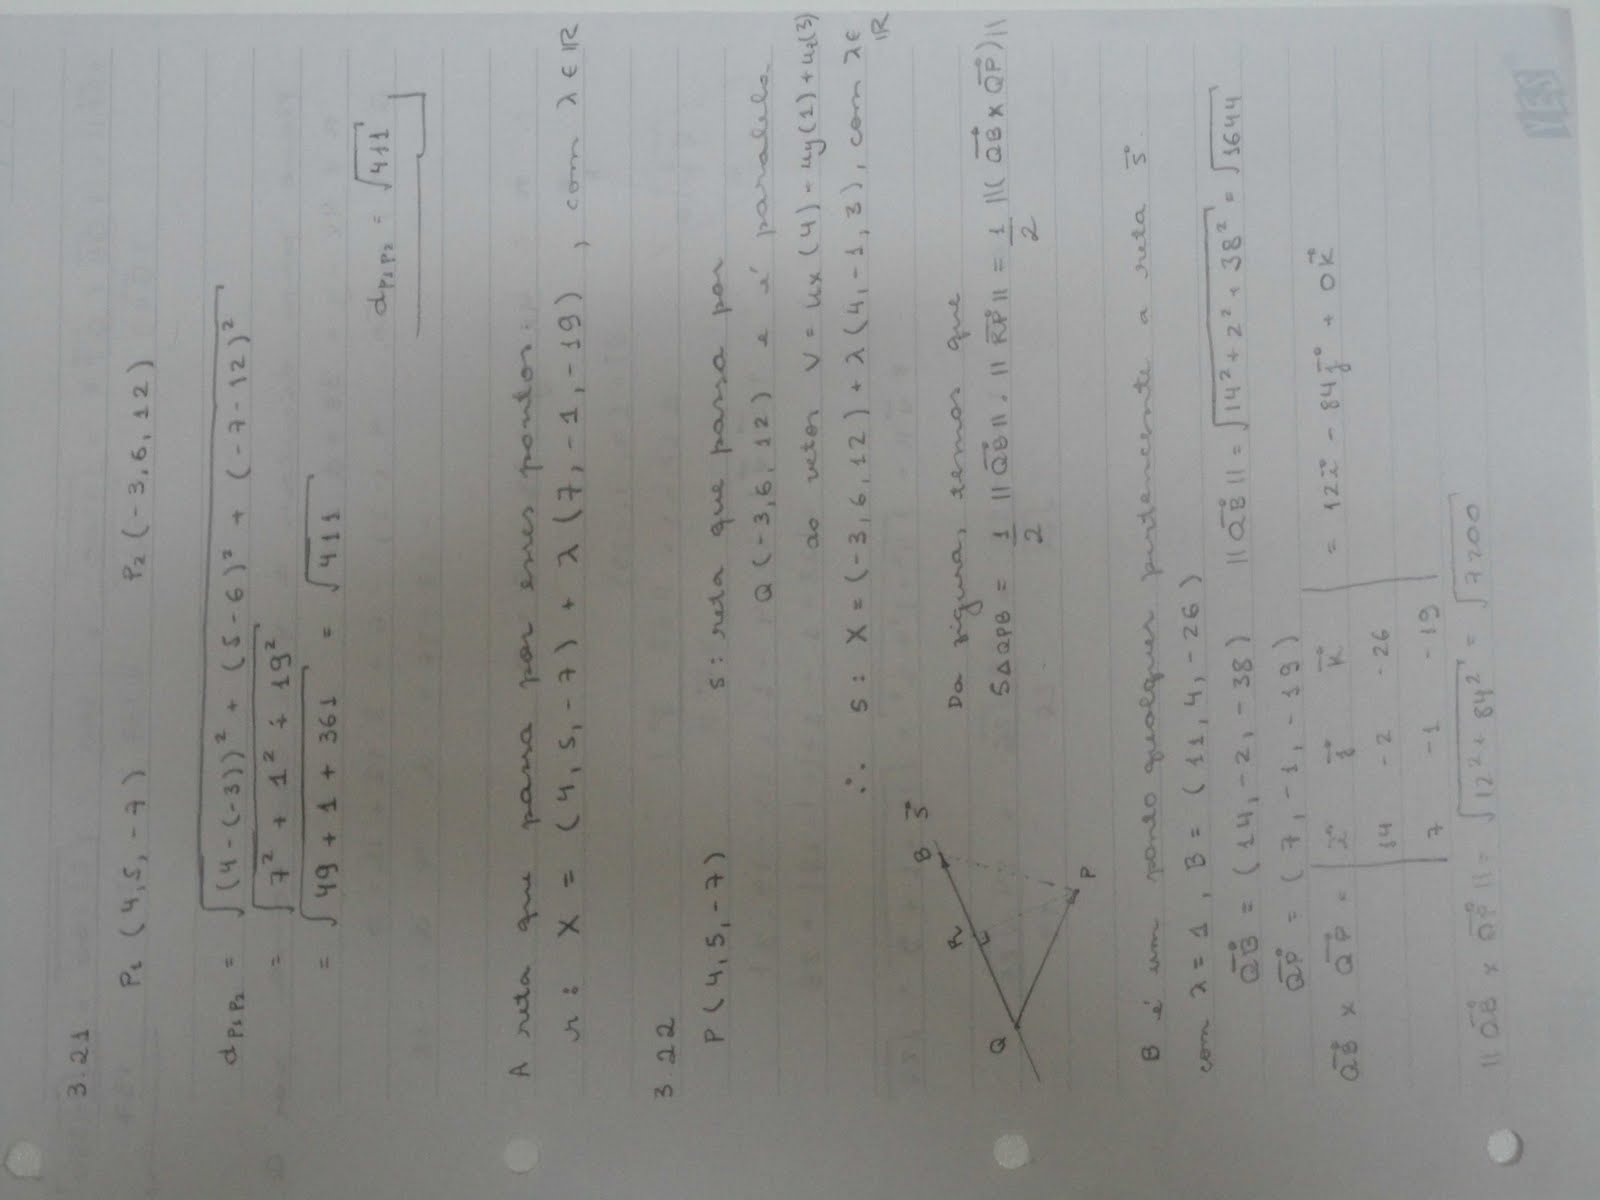 3.21
P₁ (4,5,-7)    P₂ (-3,6,12)
dP₁P₂ = √((4-(-3))² + (5-6)² + (-7-12)²)
= √(7² + 1² + 19²)
= √(49 + 1 + 361) = √411
dP₁P₂ = √411
A reta que passa por esses pontos:
r: X = (4,5,-7) + λ(7,-1,-19), com λ ∈ ℝ
3.22
P(4,5,-7)    s: reta que passa por
Q(-3,6,12) e é paralela
ao vetor v = ux(4) - uy(1) + uz(3)
∴ s: X = (-3,6,12) + λ(4,-1,3), com λ ∈ ℝ
B s⃗
R
Q
P
Da figura, temos que
SΔQPB = 1/2 ||QB⃗||.||RP⃗|| = 1/2 ||(QB⃗ x QP⃗)||
B é um ponto qualquer pertencente a reta s⃗.
com λ = 1, B = (11,4,-26)
QB⃗ = (14,-2,-38)    ||QB⃗|| = √(14² + 2² + 38²) = √1644
QP⃗ = (7,-1,-19)
QB⃗ x QP⃗ = | i⃗ j⃗ k⃗ | = 12i⃗ - 84j⃗ + 0k⃗
14 -2 -26
7 -1 -19
||QB⃗ x QP⃗|| = √(12² + 84²) = √7200